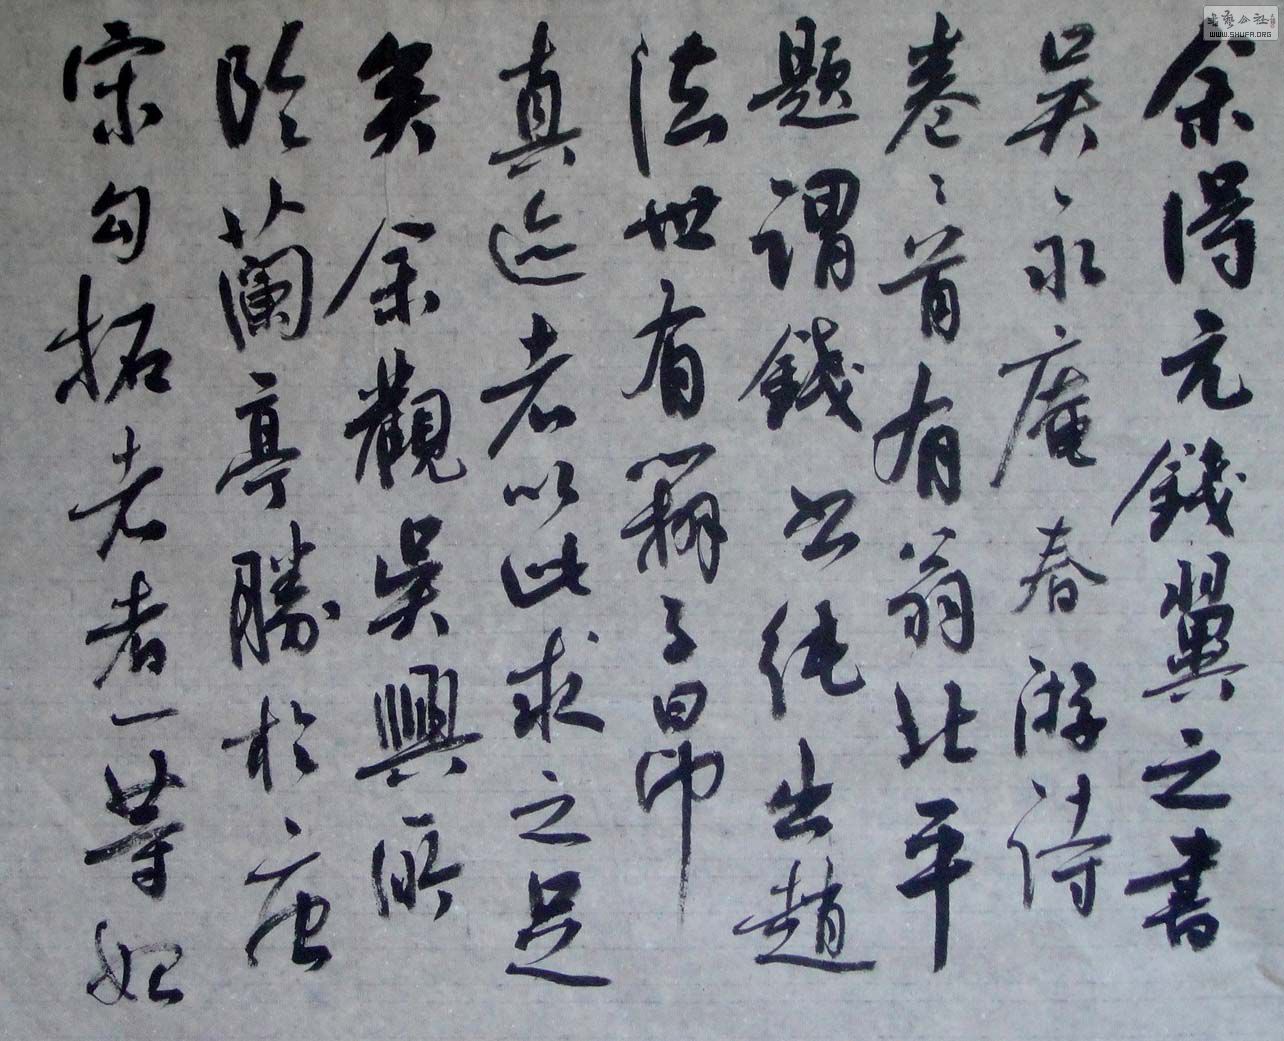 余得元錢翼之書
吴永庵春游詩
卷〻首有翁北平
題謂錢書純出趙
法世有翻子昂
真迹者以此求之足
矣余觀吴興所
臨蘭亭勝於唐
宋勾拓者者一等如
WWW.SHUFA.ORG